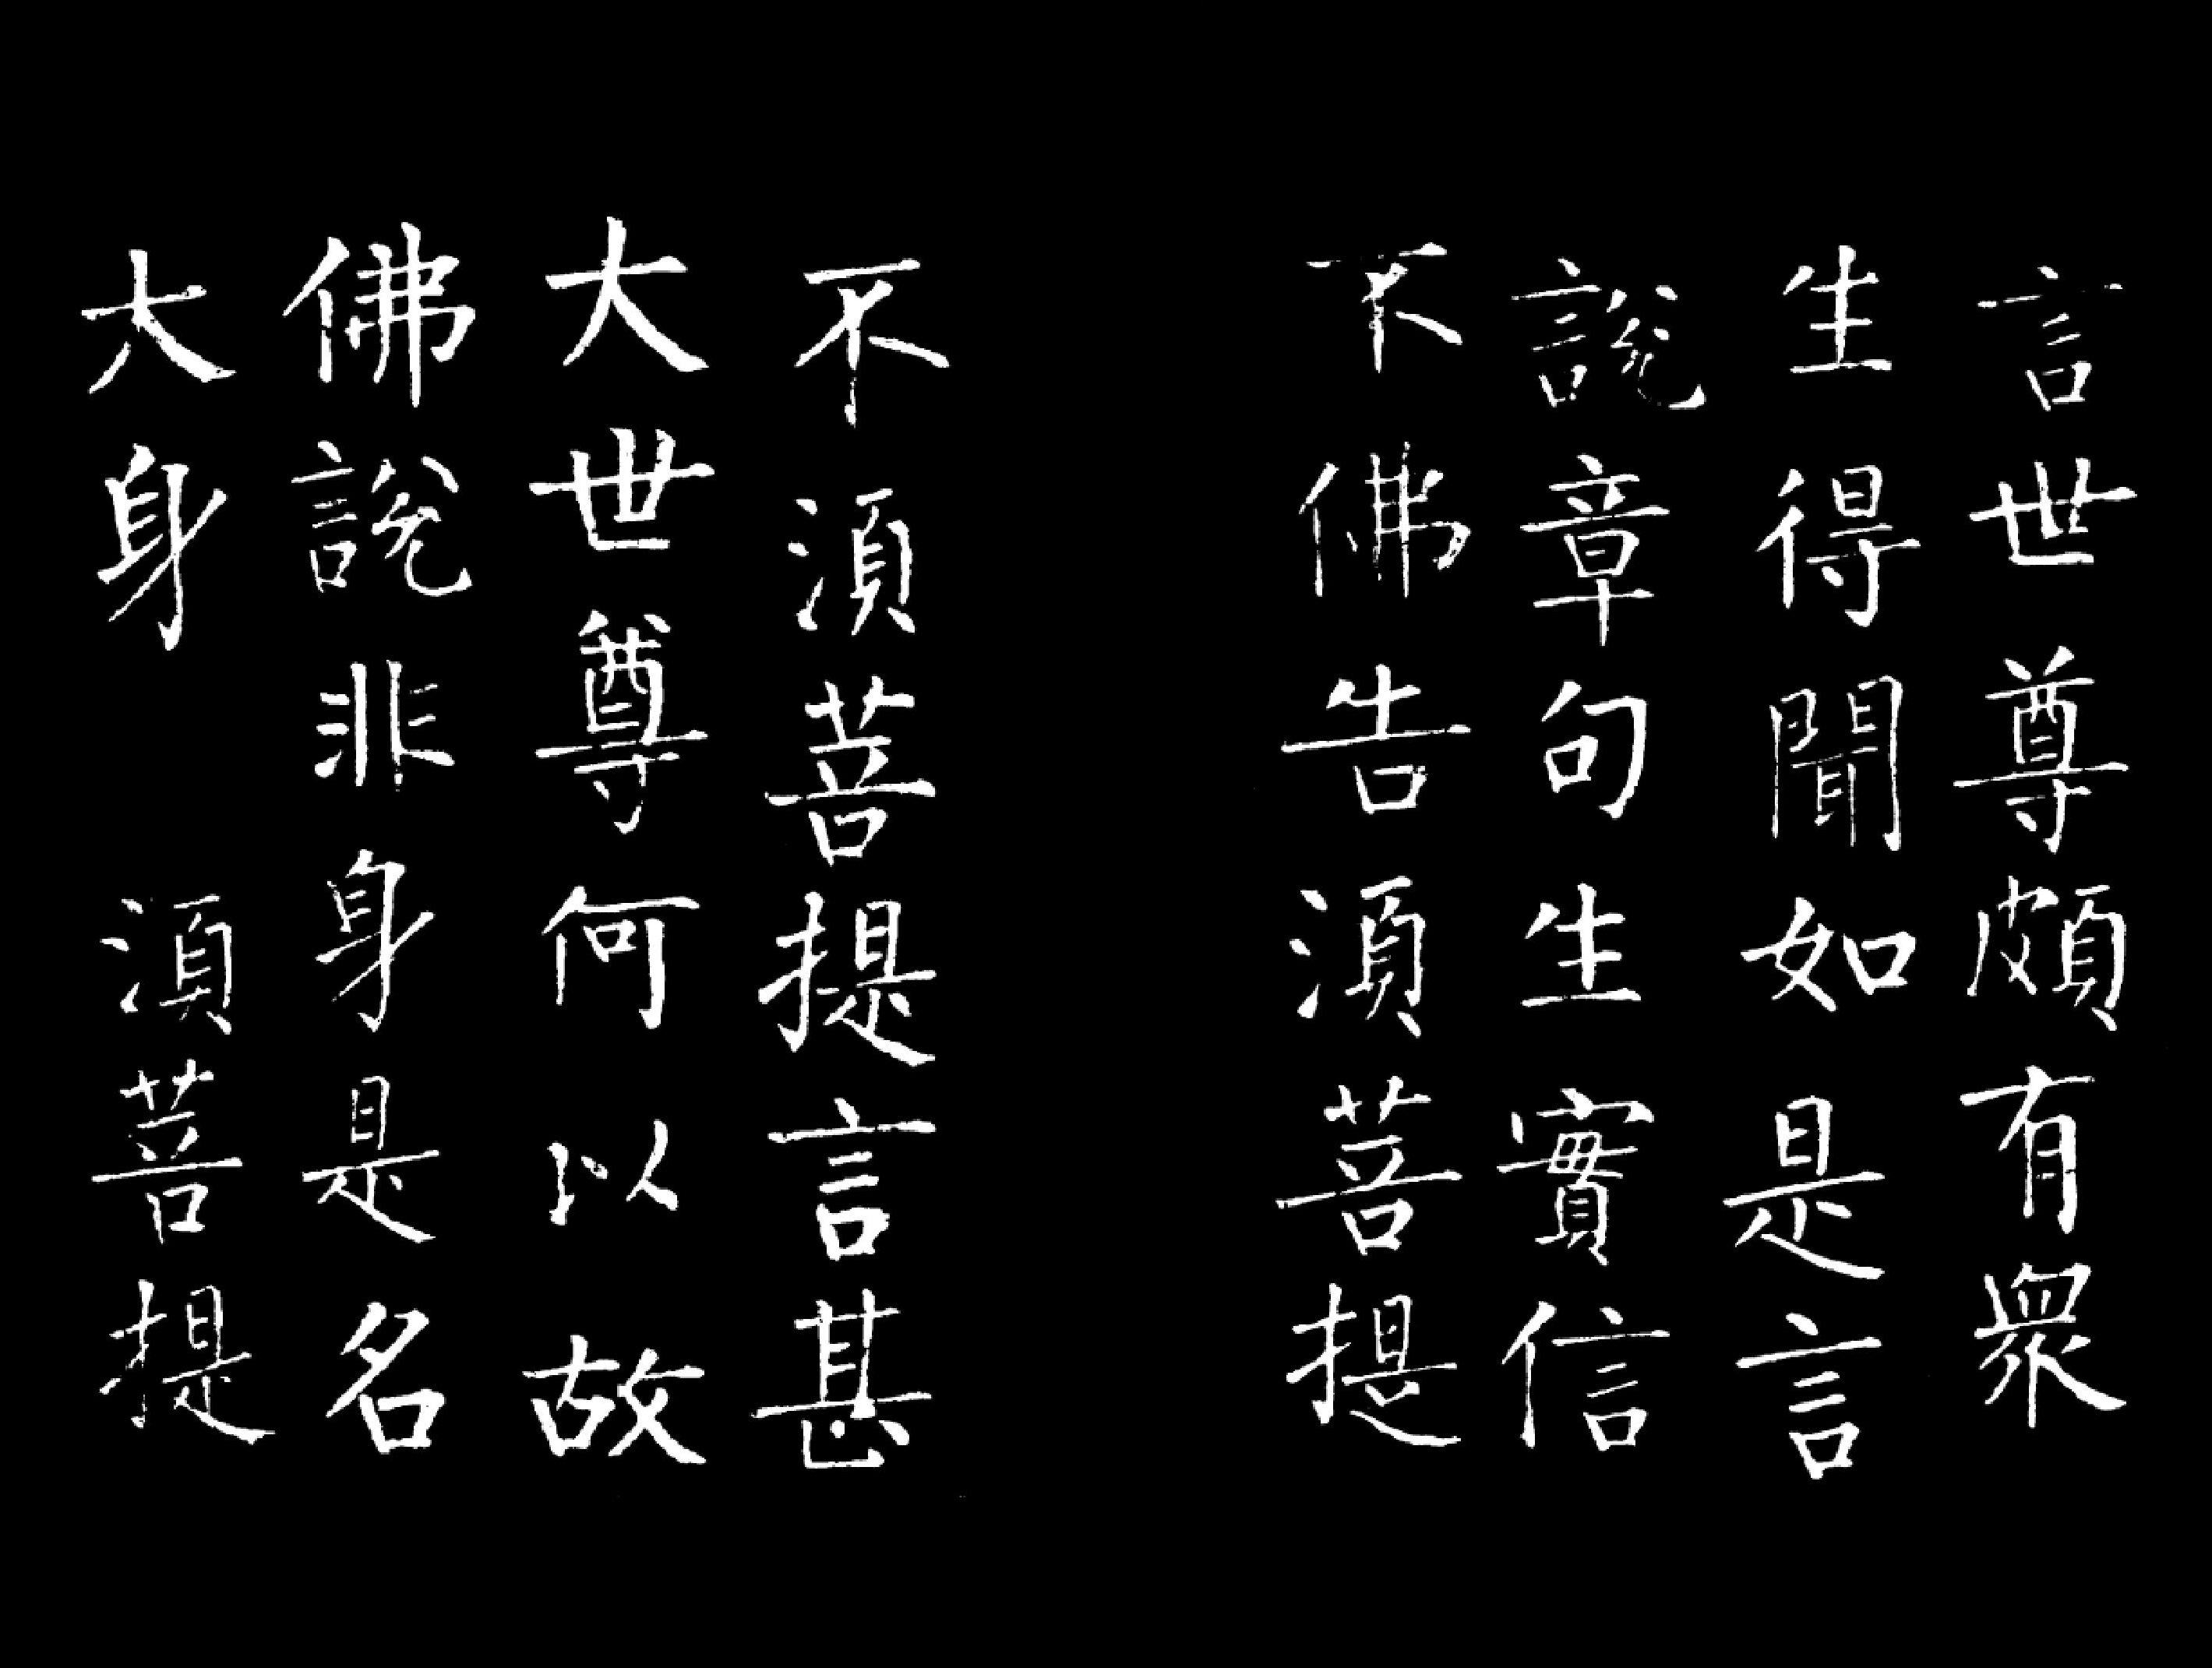 言世尊頗有衆
生得聞如是言
說章句生實信
不佛告湏菩提
不湏菩提言甚
大世尊何以故
佛說非身是名
大身 湏菩提